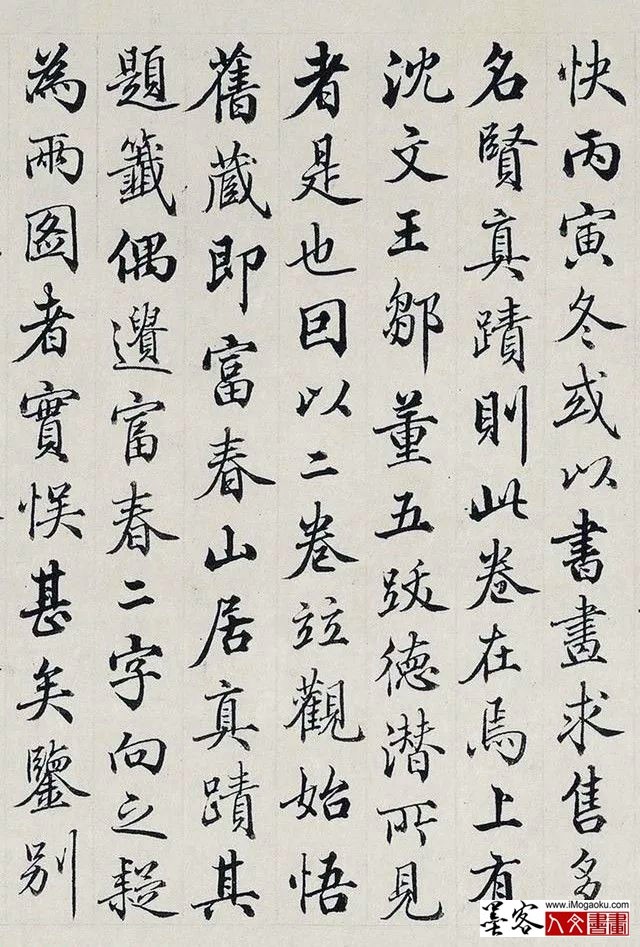 快丙寅冬或以書畫求售多
名賢真蹟則此卷在焉上有
沈文王鄒董五跋德潛所見
者是也因以二卷竝觀始悟
舊蔵即富春山居真蹟其
題籤偶遺富春二字向之疑
為兩圖者實悮甚矣鑒别
墨客
www.iMogaoku.com
人文書畫